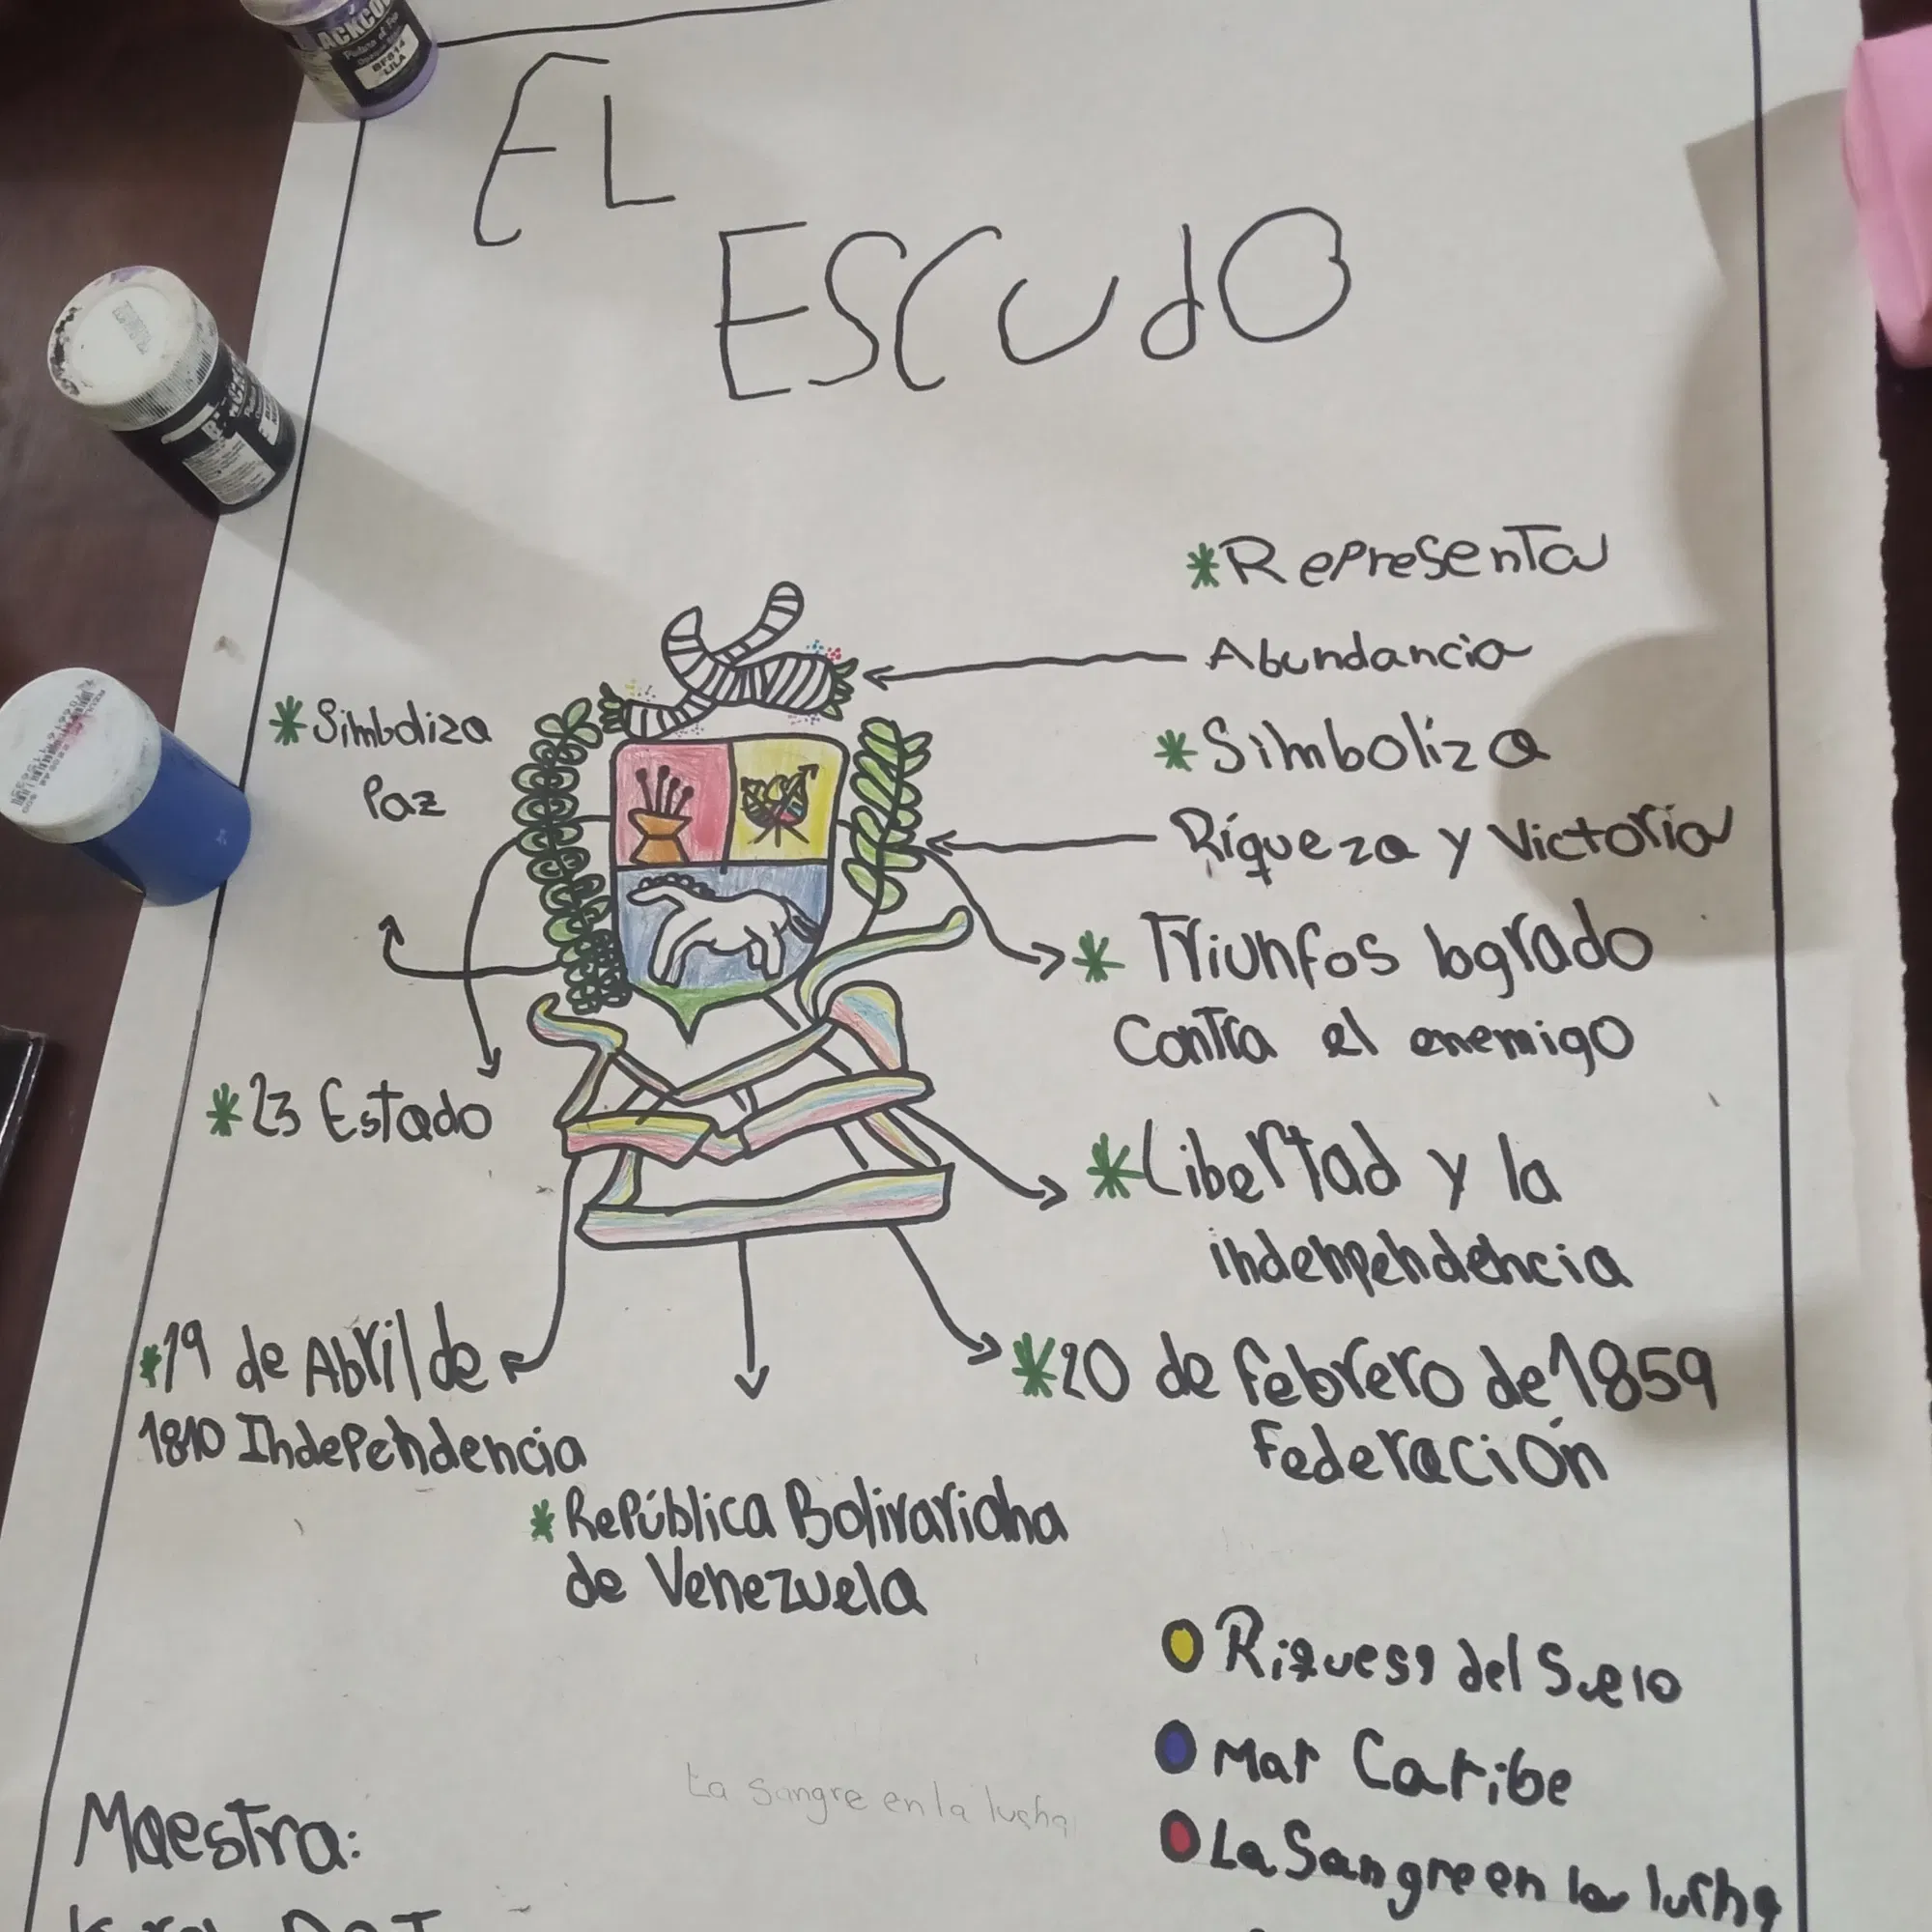 ACKCO
BF814
LILA
EL
ESCUdO
*Representa
Abundancia
*Simboliza
Paz
*Simboliza
Ríqueza y Victoria
* Triunfos logrado
Contra el enemigo
*23 Estado
*Libertad y la
indempendencia
*19 de Abril de
1810 Independencia
*20 de febrero de 1859
Federación
*República Bolivariana
de Venezuela
Riquesa del Suelo
Mar Caribe
La sangre en la lucha
La Sangre en la lucha
Maestra: